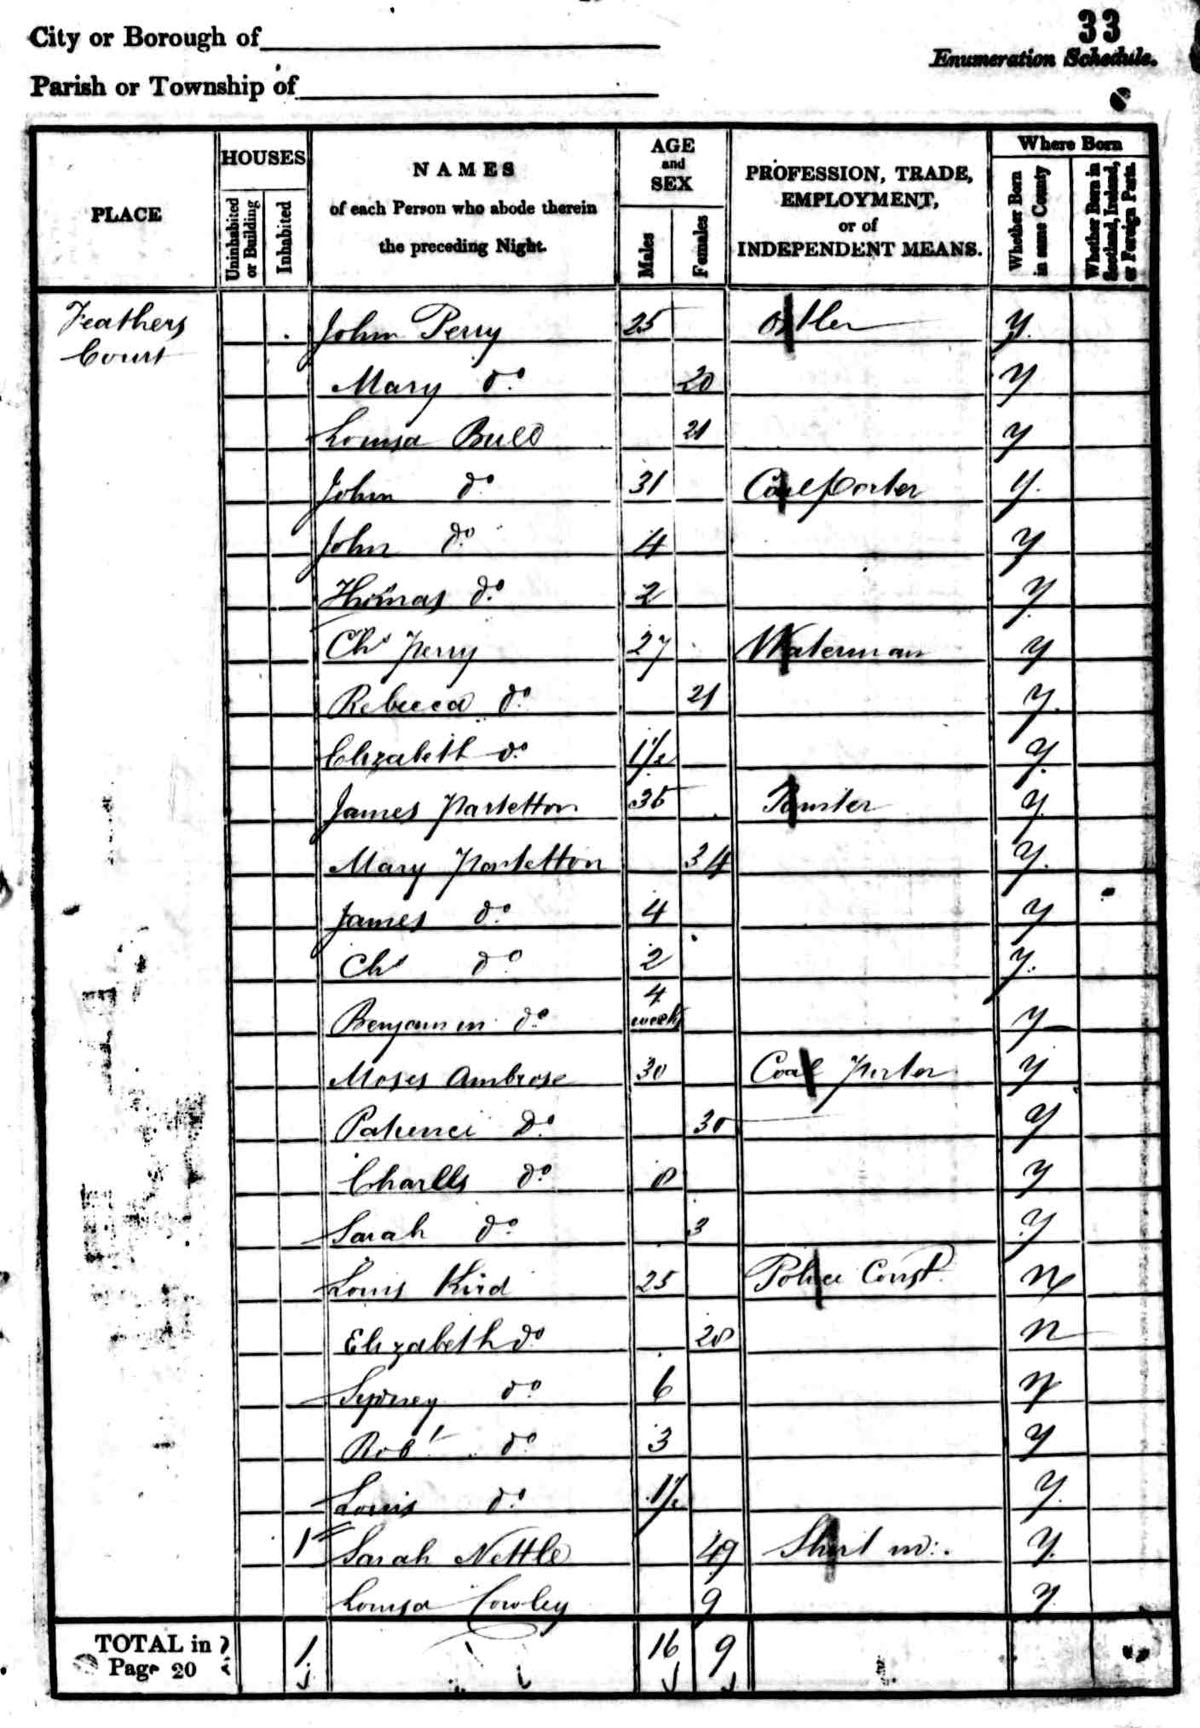 33
City or Borough of
Enumeration Schedule.
Parish or Township of
PLACE
HOUSES
Uninhabited or Building
Inhabited
NAMES
of each Person who abode therein
the preceding Night.
AGE
and
SEX
Males
Females
PROFESSION, TRADE,
EMPLOYMENT,
or of
INDEPENDENT MEANS.
Where Born
Whether Born in same County
Whether Born in Scotland, Ireland, or Foreign Parts.
Feathers John Perry 25 Ostler y.
Court
Mary do 20 y
Louisa Bull 21 y
John do 31 Coalporter y.
John do 4 y
Thomas do 2 y
Chs Perry 27 Waterman y
Rebecca do 21 y.
Elizabeth do 1½ y.
James Parletton 35 Painter y.
Mary Parletton 34 y.
James do 4 y
Chs do 2 y.
Benjamin do 4 weeks y
Moses Ambrose 30 Coal Porter y
Patience Do 30 y
Charles do 8 y
Sarah do 3 y
Louis Kird 25 Police Const. n
Elizabeth do 28 n
Sydney do 6 n
Robt do 3 y
Louis do 1½ y.
1 Sarah Nettle 49 Shirt m: y.
Louisa Cowley 9 y
TOTAL in Page 20 1 16 9